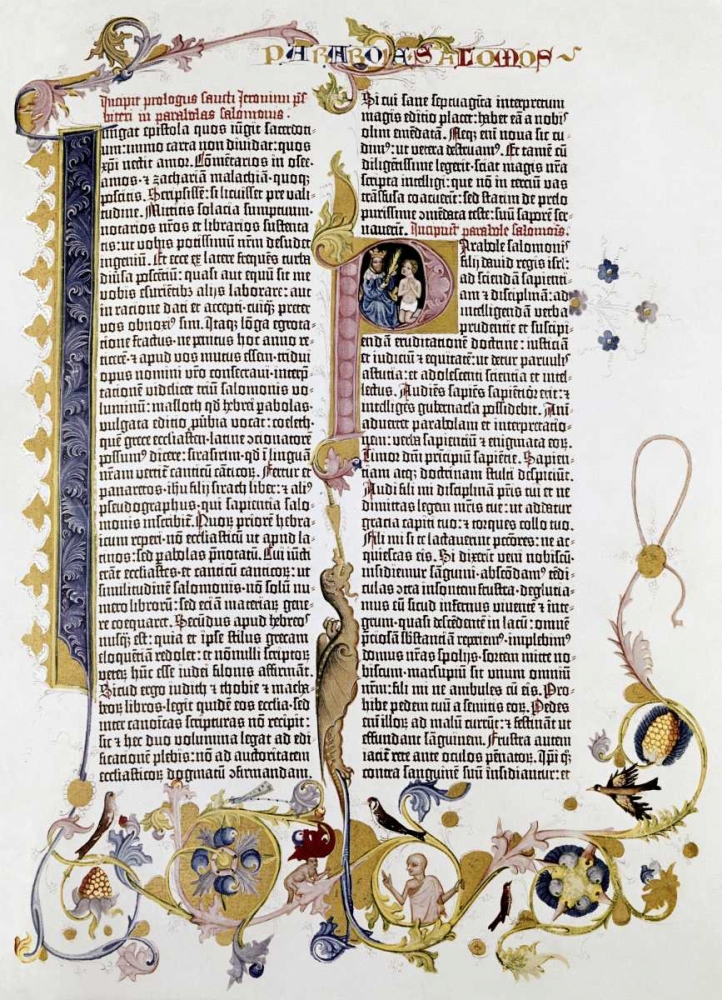 PARABOLE SALOMOIS
Incipit prologus sancti Jeronimi p̄s⸗
biteri in parabolas salomonis .
Iungat epistola quos iūgit sacerdoti⸗
um: immo carta non diuidat: quos
xp̄i nectit amor. Cōmētarios in osee·
amos· ⁊ zachariā malachiā· quoqꝫ
poscitis. Scripsissē: si licuisset pre vali⸗
tudine. Mittitis solacia sumptuum·
notarios nr̄os et librarios sustenta⸗
tis: ut vobis potissimū nr̄m desudet
ingeniū. Et ecce ex latere frequēs turba
diūsa poscētiū: quasi aut equū sit me
vobis esurientibꝫ alijs laborare: aut
in ratione dati et accepti· cuiqꝫ preter
vos obnoxiꝰ sim. Itaqꝫ lōga egrota⸗
tione fractus· ne penitus hoc anno re⸗
ticerē· ⁊ apud vos mutus essem· tridui
opus nomini vr̄o consecraui· interp̄⸗
tationē videlicet triū salomonis vo⸗
luminū: masloth qd̄ hebrei p̱abolas·
vulgata editio p̱ūbia vocat: coeleth·
quē grece ecclesiasten· latine ↄcionatorē
possumꝰ dicere: sirasirim· qd̄ ī linguā
nr̄am vertit̄ canticū cāticoꝝ. Fertur et
panaretos· ihu filij sirach liber: ⁊ aliꝰ
pseudographus· qui sapientia salo⸗
monis inscribit̄. Quoꝝ priorē hebra⸗
icum reperi· nō ecclesiasticū ut apud la⸗
tinos: sed p̱abolas p̄notatū. Cui iūcti
erāt ecclesiastes· et canticū canticoꝝ: ut
similitudinē salomonis· nō solū nu⸗
mero librorū: sed eciā materiaꝝ gene⸗
re coequaret. Secūdus apud hebreos
nusqꝫ est: quia et ipse stilus grecam
eloquētiā redolet: et nōnulli scriptoꝝ
veteꝝ hūc esse iudei filonis affirmāt.
Sicud ergo iudith ⁊ thobie ⁊ macha⸗
beoꝝ libros· legit quidē eos ecclia· sed
inter canoīcas scripturas nō recipit:
sic ⁊ hec duo volumina legat ad edi⸗
ficationē plebis: nō ad auctoritatem
ecclesiasticoꝝ dogmatū ↄfirmandam.
Si cui sane septuagīta interpretum
magis editio placet: habet eā a nobis
olim emēdatā. Neqꝫ enī noua sic cu⸗
dimꝰ: ut vetera destruamꝰ. Et tamē cū
diligētissime legerit· sciat magis nr̄a
scripta intelligi: que nō in terciū vas
trāsfusa coacuerīt: sed statim de prelo
purissime ↄmēdata teste: suū saporē ser⸗
uauerīt. Incipiūt parabole salomonis.
Parabole salomonis
filij dauid regis isrl̄:
ad sciendā sapienti⸗
am ⁊ disciplinā: ad
intelligendā verba
prudentie et suscipi⸗
endā eruditationē doctrine: iusticiā
et iudiciū ⁊ equitatē: ut detur paruulis
astutia: et adolescenti scientia et intel⸗
lectus. Audiēs sapiēs sapiētior erit: ⁊
intelligēs gubernacl̄a possidebit. Ani⸗
aduertet parabolam et interpretatio⸗
nem: verba sapientiū ⁊ enigmata eoꝝ.
Timor dn̄i principiū sapiētie. Sapien⸗
tiam atqꝫ doctrinam stulti despiciūt.
Audi fili mi disciplinā pr̄is tui et ne
dimittas legem mr̄is tue: ut addatur
gracia capiti tuo: ⁊ torques collo tuo.
Fili mi si te lactauerint pctōres: ne ac⸗
quiescas eis. Si dixerīt veni nobiscū·
insidiemur sāguini· abscōdamꝰ tēdi⸗
culas ↄtra insontem frustra· deglucia⸗
mus eū sicud infernus viuentē ⁊ inte⸗
grum· quasi descēdentē in lacū: omnē
p̄ciosā sb̄stantiā reperiemꝰ· implebimꝰ
domus nr̄as spolijs· sortem mitte no⸗
biscum· marsupiū sit unum omniū
nr̄m: fili mi ne ambules cū eis. Pro⸗
hibe pedem tuū a semitis eoꝝ. Pedes
enī illoꝝ ad malū currūt: ⁊ festināt ut
effundant sāguinem. Frustra autem
iacit̄ rete ante oculos pēnatoꝝ. Ip̄i qꝫ
contra sanguinē suū īnsidiantur: et